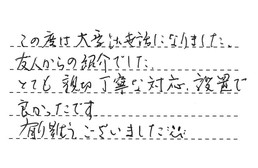 この度は大変お世話になりました。
友人からの紹介でした。
とても親切丁寧な対応、設置で
良かったです
有難うございました